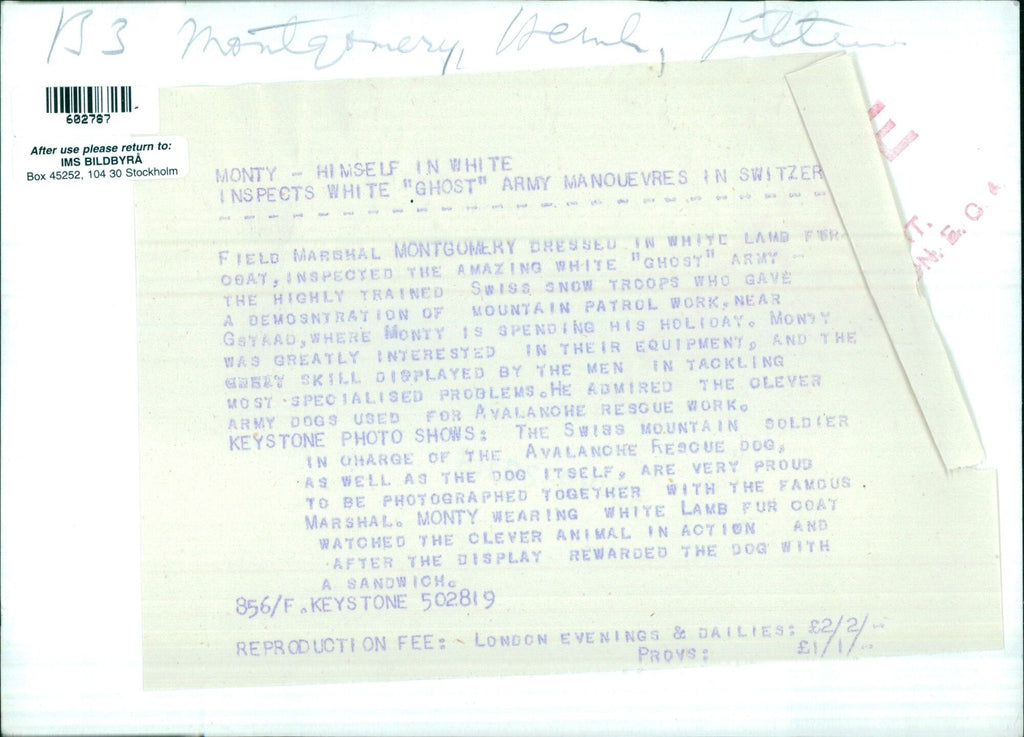 B3 Montgomery,
602787
After use please return to:
IMS BILDBYRÅ
Box 45252, 104 30 Stockholm
MONTY - HIMSELF IN WHITE
INSPECTS WHITE "GHOST" ARMY MANOUEVRES IN SWITZER
FIELD MARSHAL MONTGOMERY DRESSED IN WHITE LAMB FUR
COAT, INSPECTED THE AMAZING WHITE "GHOST" ARMY -
THE HIGHLY TRAINED SWISS SNOW TROOPS WHO GAVE
A DEMOSNTRATION OF MOUNTAIN PATROL WORK, NEAR
GSTAAD, WHERE MONTY IS SPENDING HIS HOLIDAY. MONTY
WAS GREATLY INTERESTED IN THEIR EQUIPMENT, AND THE
GREAT SKILL DISPLAYED BY THE MEN IN TACKLING
MOST SPECIALISED PROBLEMS. HE ADMIRED THE CLEVER
ARMY DOGS USED FOR AVALANCHE RESCUE WORK.
KEYSTONE PHOTO SHOWS: THE SWISS MOUNTAIN SOLDIER
IN CHARGE OF THE AVALANCHE RESCUE DOG,
AS WELL AS THE DOG ITSELF, ARE VERY PROUD
TO BE PHOTOGRAPHED TOGETHER WITH THE FAMOUS
MARSHAL. MONTY WEARING WHITE LAMB FUR COAT
WATCHED THE CLEVER ANIMAL IN ACTION AND
AFTER THE DISPLAY REWARDED THE DOG WITH
A SANDWICH.
856/F. KEYSTONE 502819
REPRODUCTION FEE: - LONDON EVENINGS & DAILIES: £2/2/--
PROVS: £1/1/--
E
T.
N. E.C.4